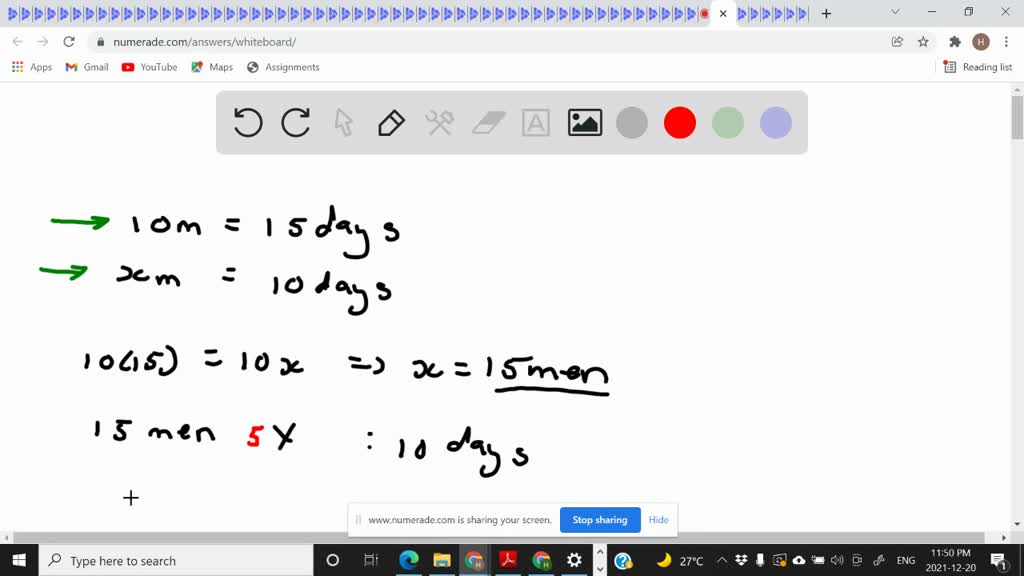 numerade.com/answers/whiteboard/
H
Apps
Gmail
YouTube
Maps
Assignments
Reading list
A
10m = 15 days
xm = 10 days
10(15) = 10x => x = 15 men
15 men 5 Y : 10 days
www.numerade.com is sharing your screen.
Stop sharing
Hide
Type here to search
27°C
ENG
11:50 PM
2021-12-20
1